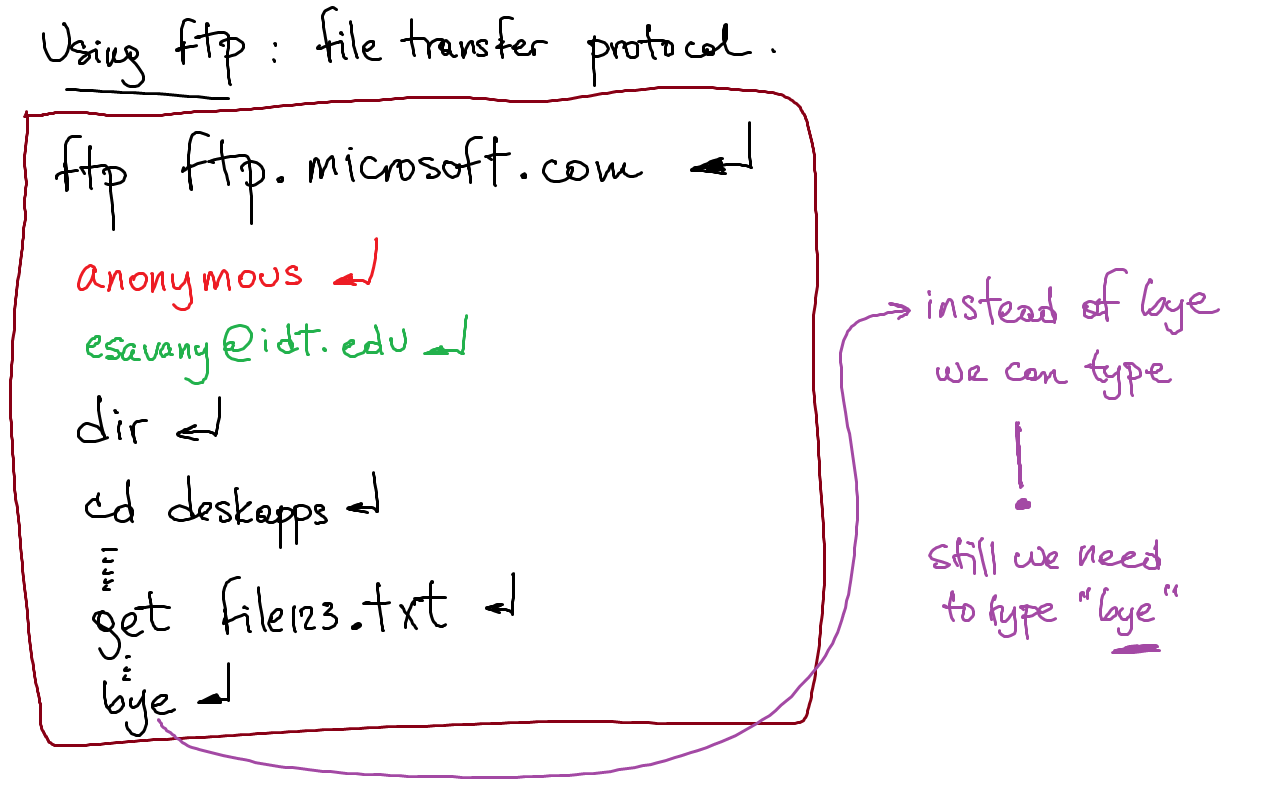 Using ftp : file transfer protocol.
ftp ftp.microsoft.com ↵
anonymous ↵
esavany@idt.edu ↵
dir ↵
cd deskapps ↵
get file123.txt ↵
bye ↵
instead of bye
we can type
!
still we need
to type "bye"